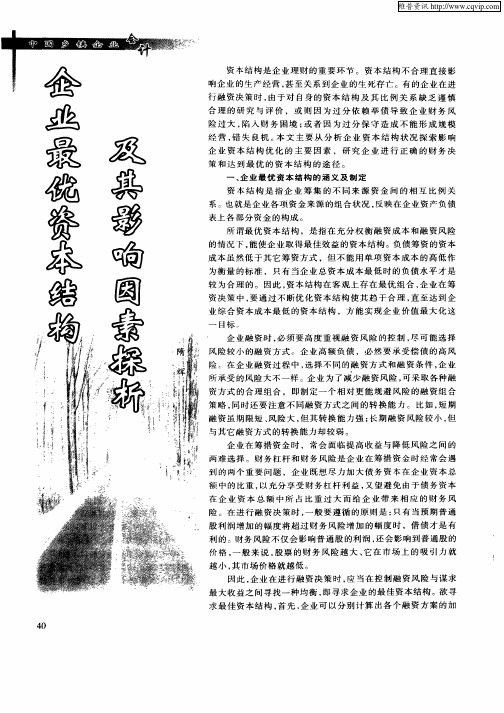 维普资讯 http://www.cqvip.com
中国乡镇企业会计
企业最优资本结构
及其影响因素探析
隋辉
资本结构是企业理财的重要环节。资本结构不合理直接影
响企业的生产经营,甚至关系到企业的生死存亡。有的企业在进
行融资决策时,由于对自身的资本结构及其比例关系缺乏谨慎
合理的研究与评价，或则因为过分依赖举债导致企业财务风
险过大,陷入财务困境;或者因为过分保守造成不能形成规模
经营,错失良机。本文主要从分析企业资本结构状况探索影响
企业资本结构优化的主要因素，研究企业进行正确的财务决
策和达到最优的资本结构的途径。
一、企业最优资本结构的涵义及制定
资本结构是指企业筹集的不同来源资金间的相互比例关
系。也就是企业各项资金来源的组合状况,反映在企业资产负债
表上各部分资金的构成。
所谓最优资本结构，是指在充分权衡融资成本和融资风险
的情况下,能使企业取得最佳效益的资本结构。负债筹资的资本
成本虽然低于其它筹资方式，但不能用单项资本成本的高低作
为衡量的标准，只有当企业总资本成本最低时的负债水平才是
较为合理的。因此,资本结构在客观上存在最优组合,企业在筹
资决策中,要通过不断优化资本结构使其趋于合理,直至达到企
业综合资本成本最低的资本结构，方能实现企业价值最大化这
一目标。
企业融资时,必须要高度重视融资风险的控制,尽可能选择
风险较小的融资方式。企业高额负债，必然要承受偿债的高风
险。在企业融资过程中,选择不同的融资方式和融资条件,企业
所承受的风险大不一样。企业为了减少融资风险,可采取各种融
资方式的合理组合，即制定一个相对更能规避风险的融资组合
策略,同时还要注意不同融资方式之间的转换能力。比如,短期
融资虽期限短、风险大,但其转换能力强;长期融资风险较小,但
与其它融资方式的转换能力却较弱。
企业在筹措资金时，常会面临提高收益与降低风险之间的
两难选择。财务杠杆和财务风险是企业在筹措资金时经常会遇
到的两个重要问题，企业既想尽力加大债务资本在企业资本总
额中的比重,以充分享受财务杠杆利益,又望避免由于债务资本
在企业资本总额中所占比重过大而给企业带来相应的财务风
险。在进行融资决策时,一般要遵循的原则是:只有当预期普通
股利润增加的幅度将超过财务风险增加的幅度时，借债才是有
利的。财务风险不仅会影响普通股的利润,还会影响到普通股的
价格,一般来说,股票的财务风险越大、它在市场上的吸引力就
越小,其市场价格就越低。
因此,企业在进行融资决策时,应当在控制融资风险与谋求
最大收益之间寻找一种均衡,即寻求企业的最佳资本结构。欲寻
求最佳资本结构,首先,企业可以分别计算出各个融资方案的加
40